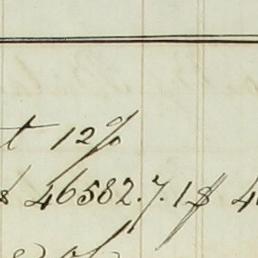 t 12%
$ 46582.7.1 $ 4